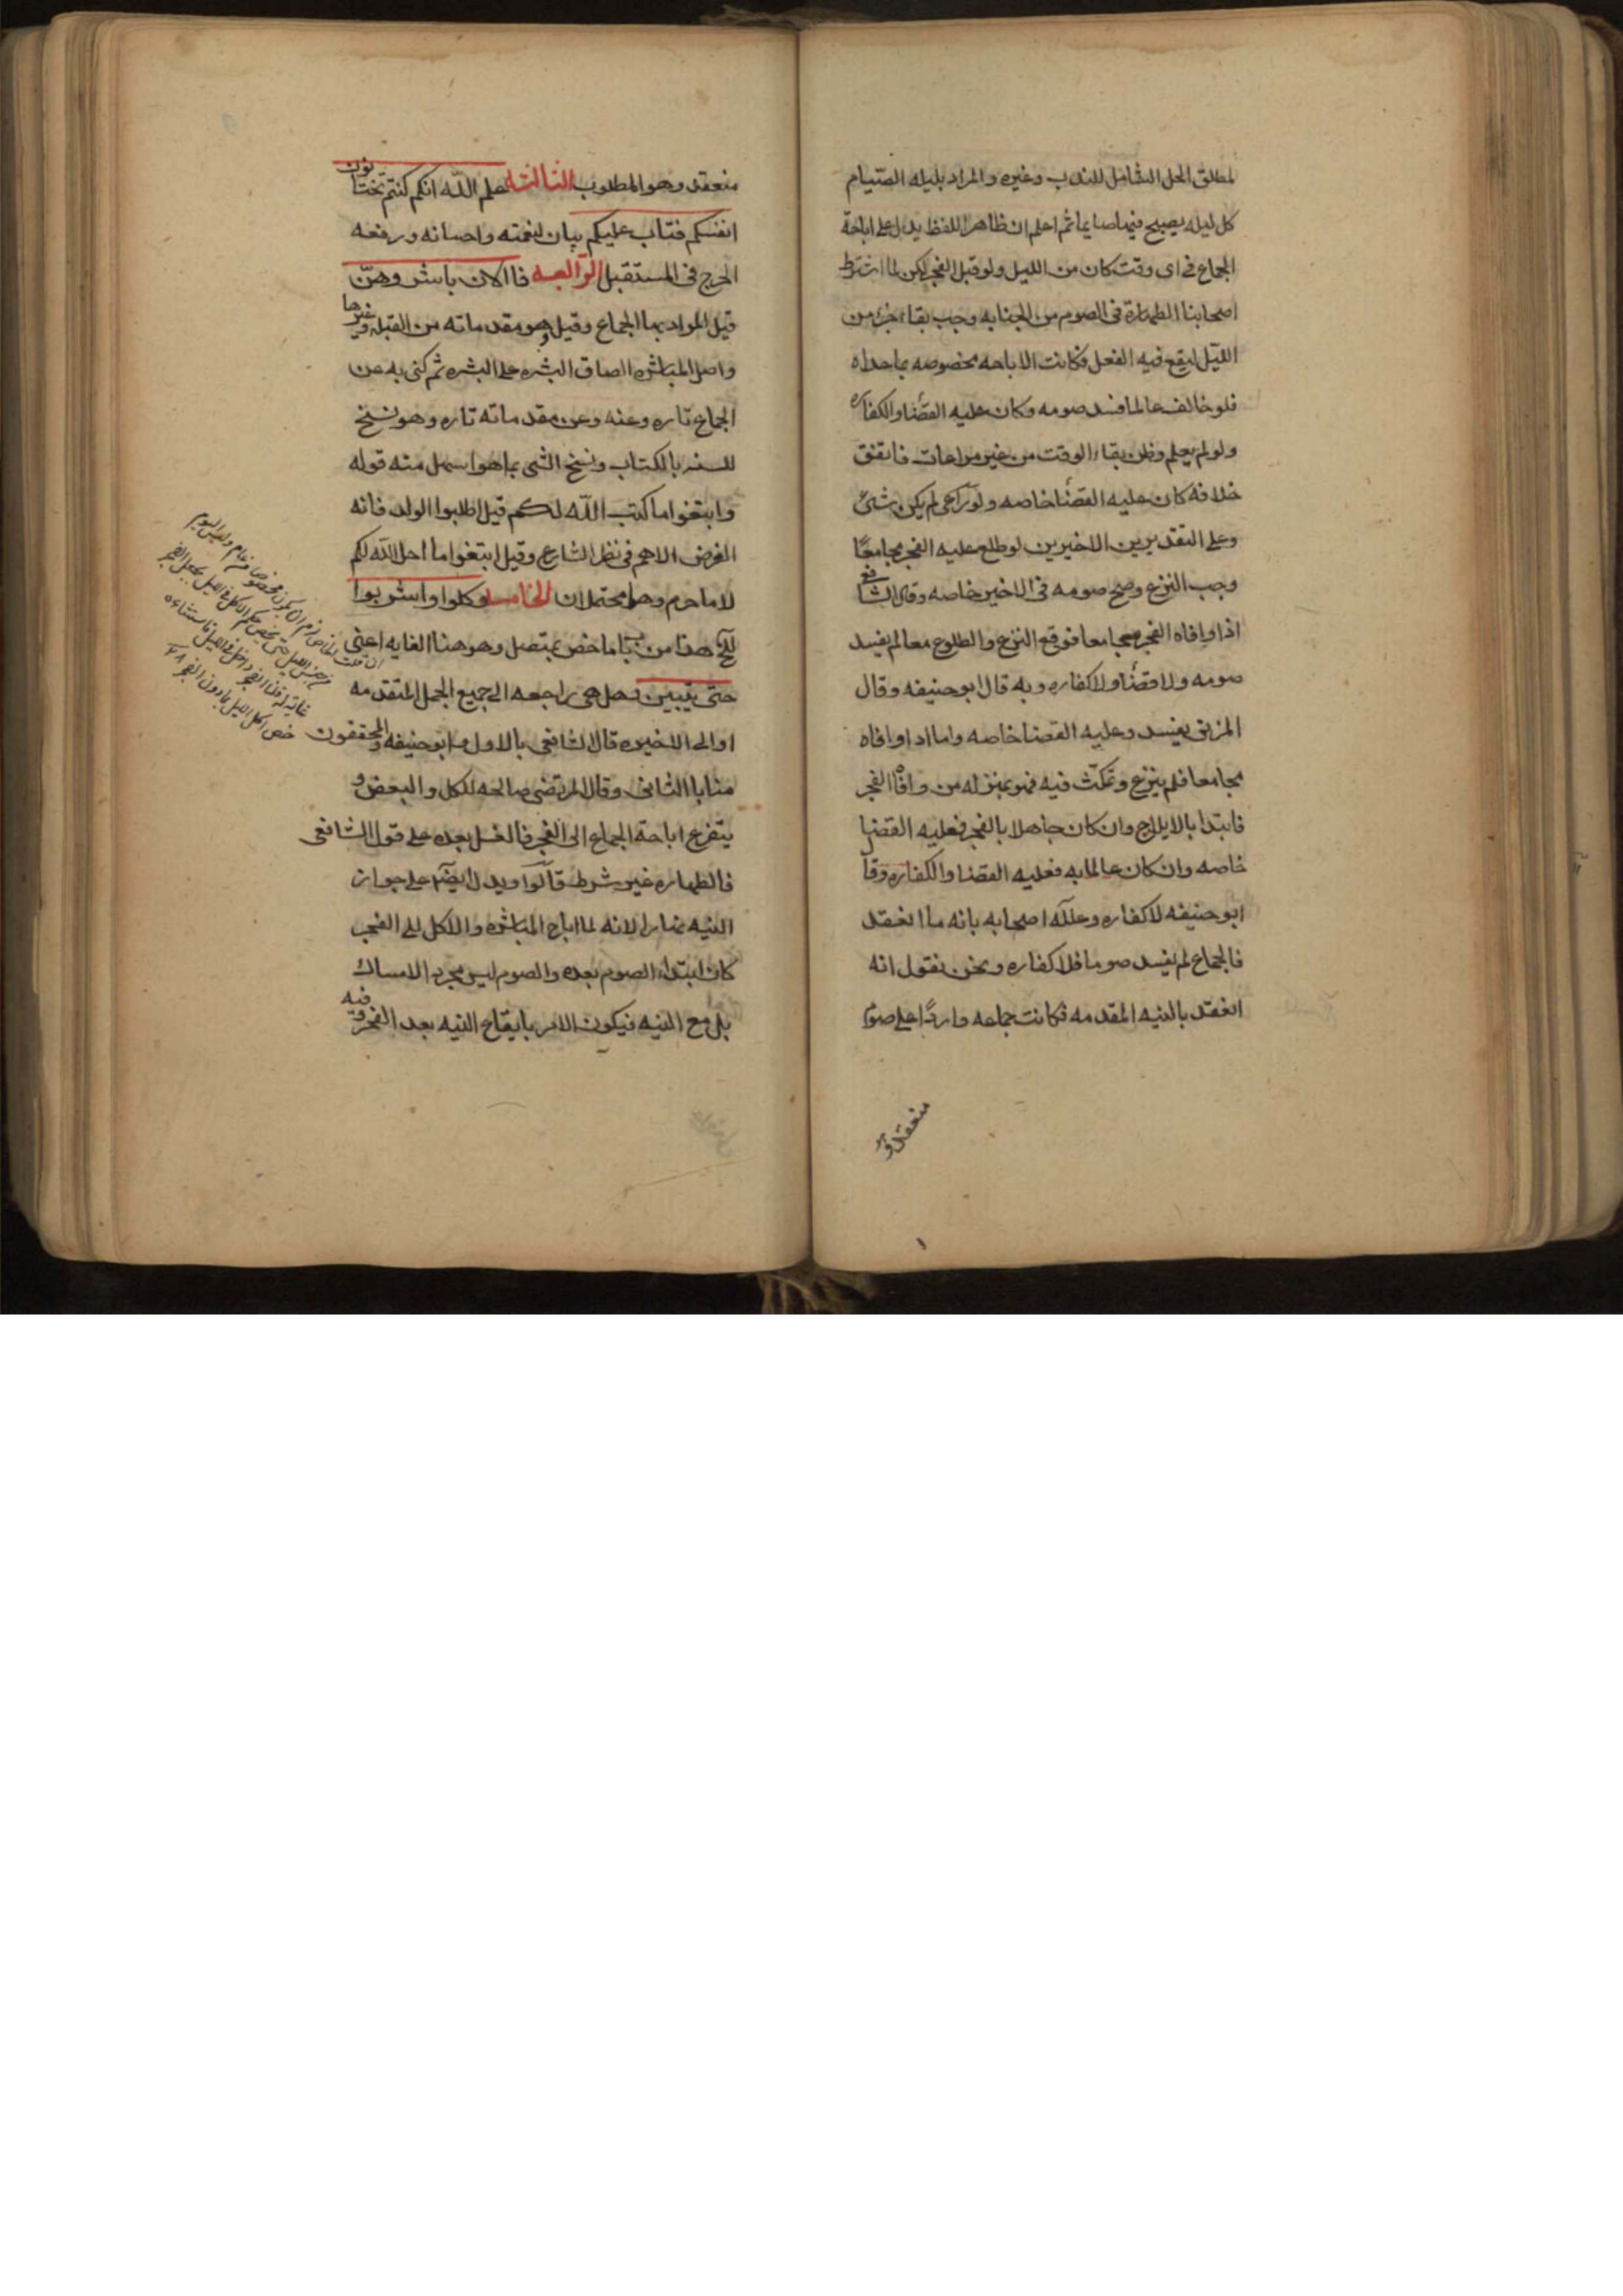 لمطلق الحل الشامل للندب وغيره والمراد بليله الصيام
كل ليله يصبح فيها صايما ثم اعلم ان ظاهر اللفظ يدل على اباحة
الجماع فى اى وقت كان من الليل ولو قبل الفجر لكن لما اشترط
اصحابنا الطهارة فى الصوم من الجنابه وجب بقاء جزء من
الليل ليقع فيه الغسل فكانت الاباحه مخصوصه بما عداه
فلو خالف عالما فسد صومه وكان عليه القضا والكفاره
ولو لم يعلم وظن بقاء الوقت من غير مراعات فاتفق
خلافه كان عليه القضا خاصه ولو راعى لم يكن شئ
وعلى التقديرين الاخيرين لو طلع عليه الفجر مجامعًا
وجب النزع وصح صومه فى الاخير خاصه وقال الشافع
اذا وافاه الفجر مجامعا فوقع النزع والطلوع معا لم يفسد
صومه ولا قضاء ولا كفاره وبه قال ابو حنيفه وقال
المزنى يفسد وعليه القضا خاصه واما اذا وافاه
مجامعا فلم ينزع وتمكث فيه فهو بمنزله من وافاه الفجر
فابتدا بالايلاج وان كان جاهلا بالفجر فعليه القضا
خاصه وان كان عالما به فعليه القضا والكفاره وقا
ابو حنيفه لا كفاره وعلله اصحابه بانه ما انعقد
فالجماع لم يفسد صوما فلا كفاره ونحن نقول انه
انعقد بالنيه المقدمه فكانت جماعه واردًا على صوم
منعقد و
منعقد وهو المطلوب الثالثه علم الله انكم كنتم تختانون
انفسكم فتاب عليكم بيان لنعمته واحسانه ورفعه
الحرج فى المستقبل الرابعه فالان باشروهنّ
قيل المراد بها الجماع وقيل هو ومقدماته من القبله وغيرها
واصل المباشره الصاق البشره على البشره ثم كنى به عن
الجماع تاره وعنه وعن مقدماته تاره وهو نسخ
للسنه بالكتاب ونسخ الشى بما هو اسهل منه قوله
وابتغوا ما كتب الله لكم قيل اطلبوا الولد فانه
الغرض الاهم فى نظر الشارع وقيل ابتغوا ما احل الله لكم
لا ما حرم وهما محتملان الخامسه وكلوا واشربوا
هذا من باب ما خص بمتصل وهو هنا الغايه اعنى
حتى يتبين وهل هى راجعه الى جميع الجمل المتقدمه
او الى الاخيره قال الشافعى بالاول وابو حنيفه والمحققون
منا بالثانى وقال المرتضى صالحه للكل والبعض و
يتفرع اباحة الجماع الى الفجر فالغسل بعده على قول الشافعى
فالطهاره غير شرط قالوا ويدل ايضا على جواز
النيه نهارا لانه لما اباح المباشره والاكل الى الفجر
كان ابتداء الصوم بعده والصوم ليس مجرد الامساك
بل مع النيه فيكون الامر بايقاع النيه بعد الفجر وفيه